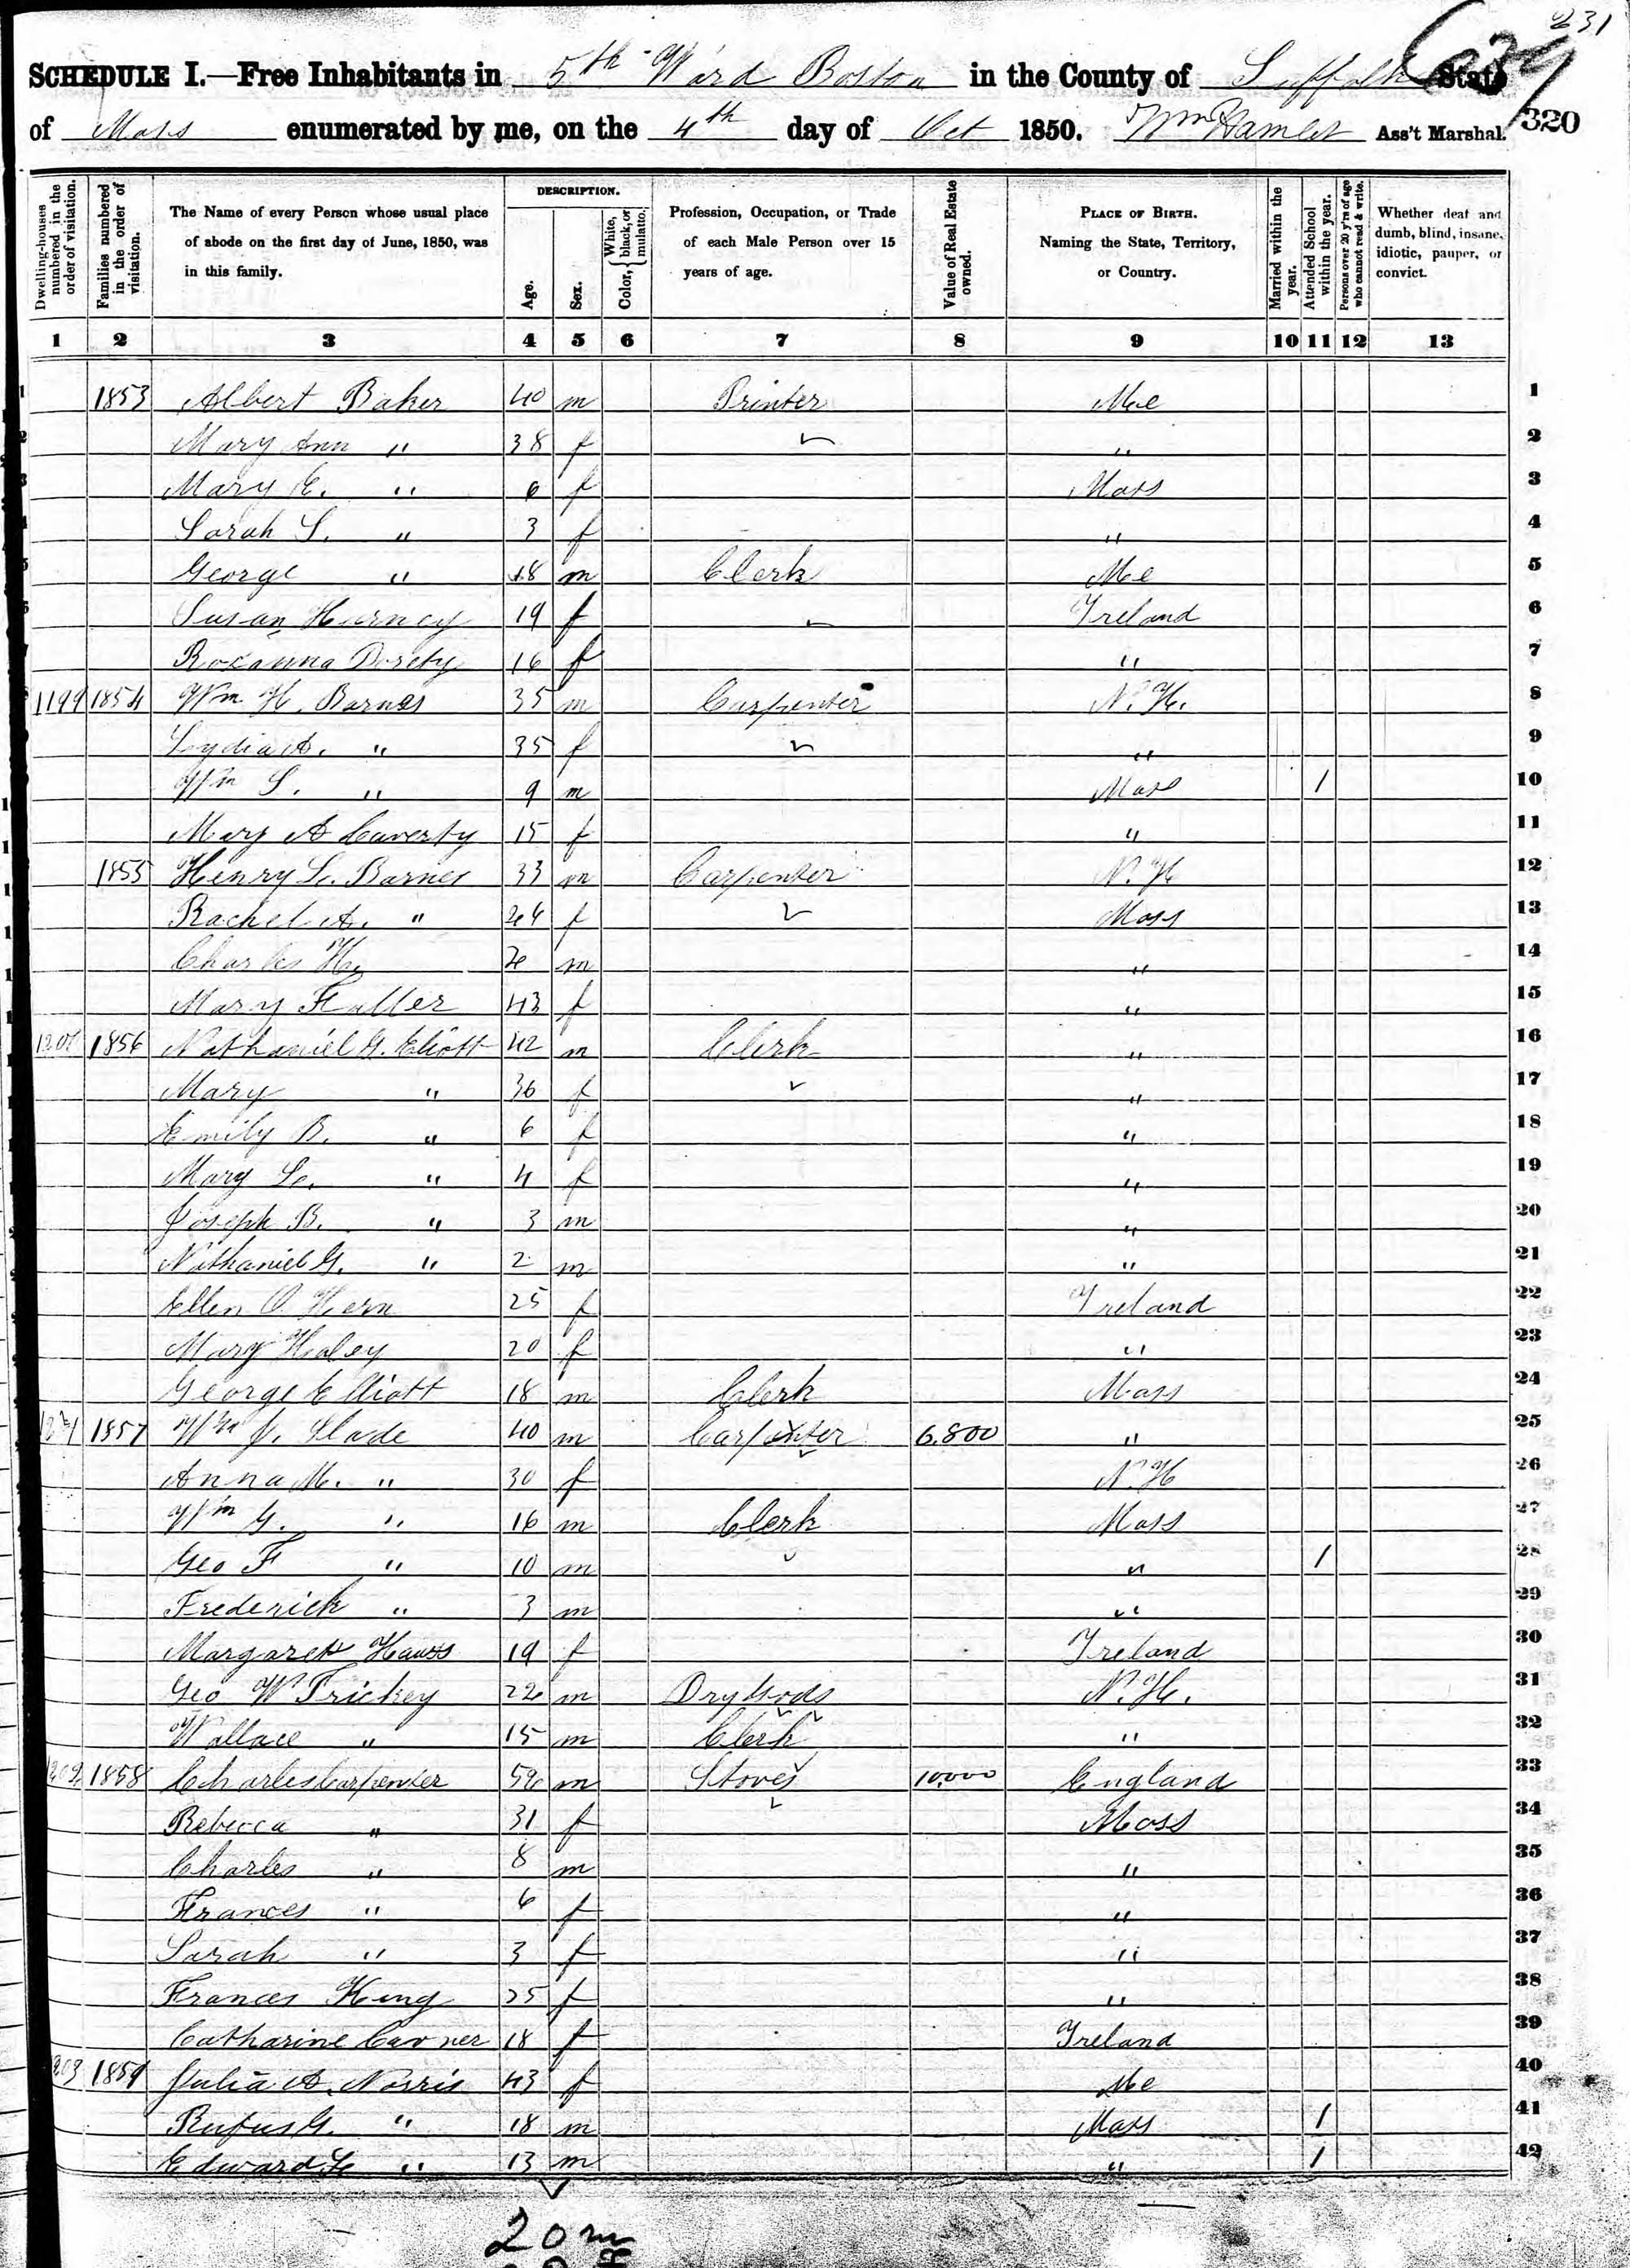 231
SCHEDULE I.—Free Inhabitants in 5th Ward Boston in the County of Suffolk State
of Mass enumerated by me, on the 4th day of Oct 1850. Wm Hamlet Ass't Marshal. 320
Dwelling-houses numbered in the order of visitation.
Families numbered in the order of visitation.
The Name of every Person whose usual place of abode on the first day of June, 1850, was in this family.
DESCRIPTION.
Age.
Sex.
Color, { White, black, or mulatto.
Profession, Occupation, or Trade of each Male Person over 15 years of age.
Value of Real Estate owned.
PLACE OF BIRTH. Naming the State, Territory, or Country.
Married within the year.
Attended School within the year.
Persons over 20 y'rs of age who cannot read & write.
Whether deaf and dumb, blind, insane, idiotic, pauper, or convict.
1 2 3 4 5 6 7 8 9 10 11 12 13
1853 Albert Baker 40 m Printer Me 1
Mary Ann " 38 f " 2
Mary E. " 6 f Mass 3
Sarah S. " 3 f " 4
George " 18 m Clerk Me 5
Susan 19 f Ireland 6
Roxanna 16 f " 7
1199 1854 Wm H. Barnes 35 m Carpenter N.H. 8
Lydia A. " 35 f " 9
Wm S. " 9 m Mass 1 10
Mary A 15 f " 11
1855 Henry L. Barnes 33 m Carpenter N.H 12
Rachel A. " 24 f Mass 13
Charles H. 2 m " 14
Mary Fuller 43 f " 15
1200 1856 Nathaniel G. Eliott 42 m Clerk " 16
Mary " 36 f " 17
Emily B. " 6 f " 18
Mary L. " 4 f " 19
Joseph B. " 3 m " 20
Nathaniel G. " 2 m " 21
Ellen O Hern 25 f Ireland 22
Mary Haley 20 f " 23
George Elliott 18 m Clerk Mass 24
1857 Wm J. Slade 40 m Carpenter 6.800 " 25
Anna M. " 30 f N.H 26
Wm G. " 16 m Clerk Mass 27
Geo F " 10 m " 1 28
Frederick " 3 m " 29
Margaret 19 f Ireland 30
Geo W Trickey 22 m Dry Goods N.H. 31
Wallace " 15 m Clerk " 32
1202 1858 Charles Carpenter 52 m Stoves 10,000 England 33
Rebecca " 31 f Mass 34
Charles " 8 m " 35
Frances " 6 f " 36
Sarah " 3 f " 37
Frances King 25 f " 38
Catharine 18 f Ireland 39
203 1859 Julia A. Norris 43 f Me 40
Rufus G. " 18 m Mass 1 41
Edward L " 13 m " 1 42
20 m